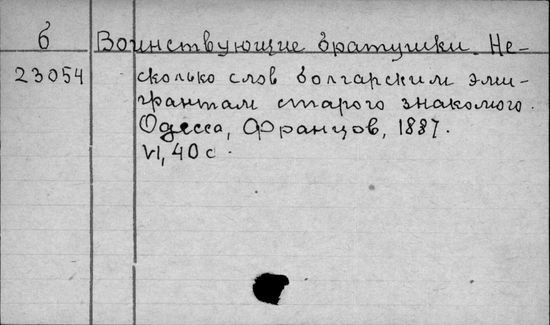 б Воинствующие братушки. Не-
23054 сколько слов болгарским эми-
грантам старого знакомого.
Одесса, Францов, 1887.
VI, 40 с.